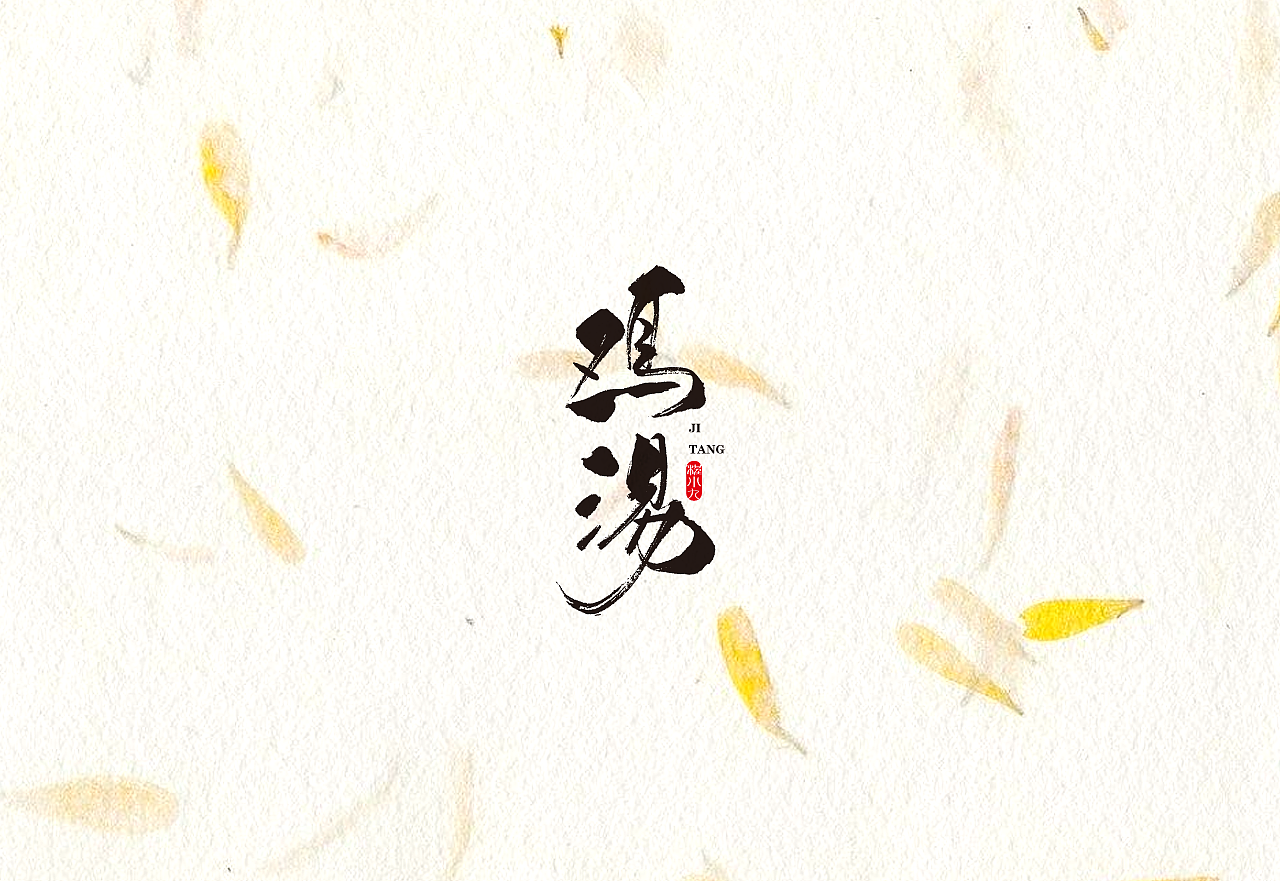 鸡汤
JI
TANG
小九